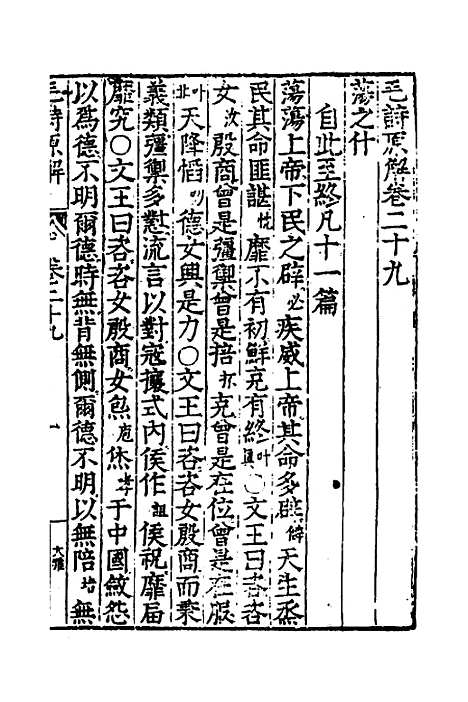 毛詩原解卷二十九
蕩之什
自此至終凡十一篇
蕩蕩上帝下民之辟必疾威上帝其命多辟僻天生烝
民其命匪諶忱靡不有初鮮克有終叶○文王曰咨咨
女汝殷商曾是彊禦曾是掊克曾是在位曾是在服
叶天降慆叨德女興是力○文王曰咨咨女殷商而秉
義類彊禦多懟流言以對寇攘式內侯作詛侯祝靡屆
靡究○文王曰咨咨女殷商女炰庖烋孝于中國斂怨
以爲德不明爾德時無背無側爾德不明以無陪培無
毛詩原解 卷二十九 一 大雅